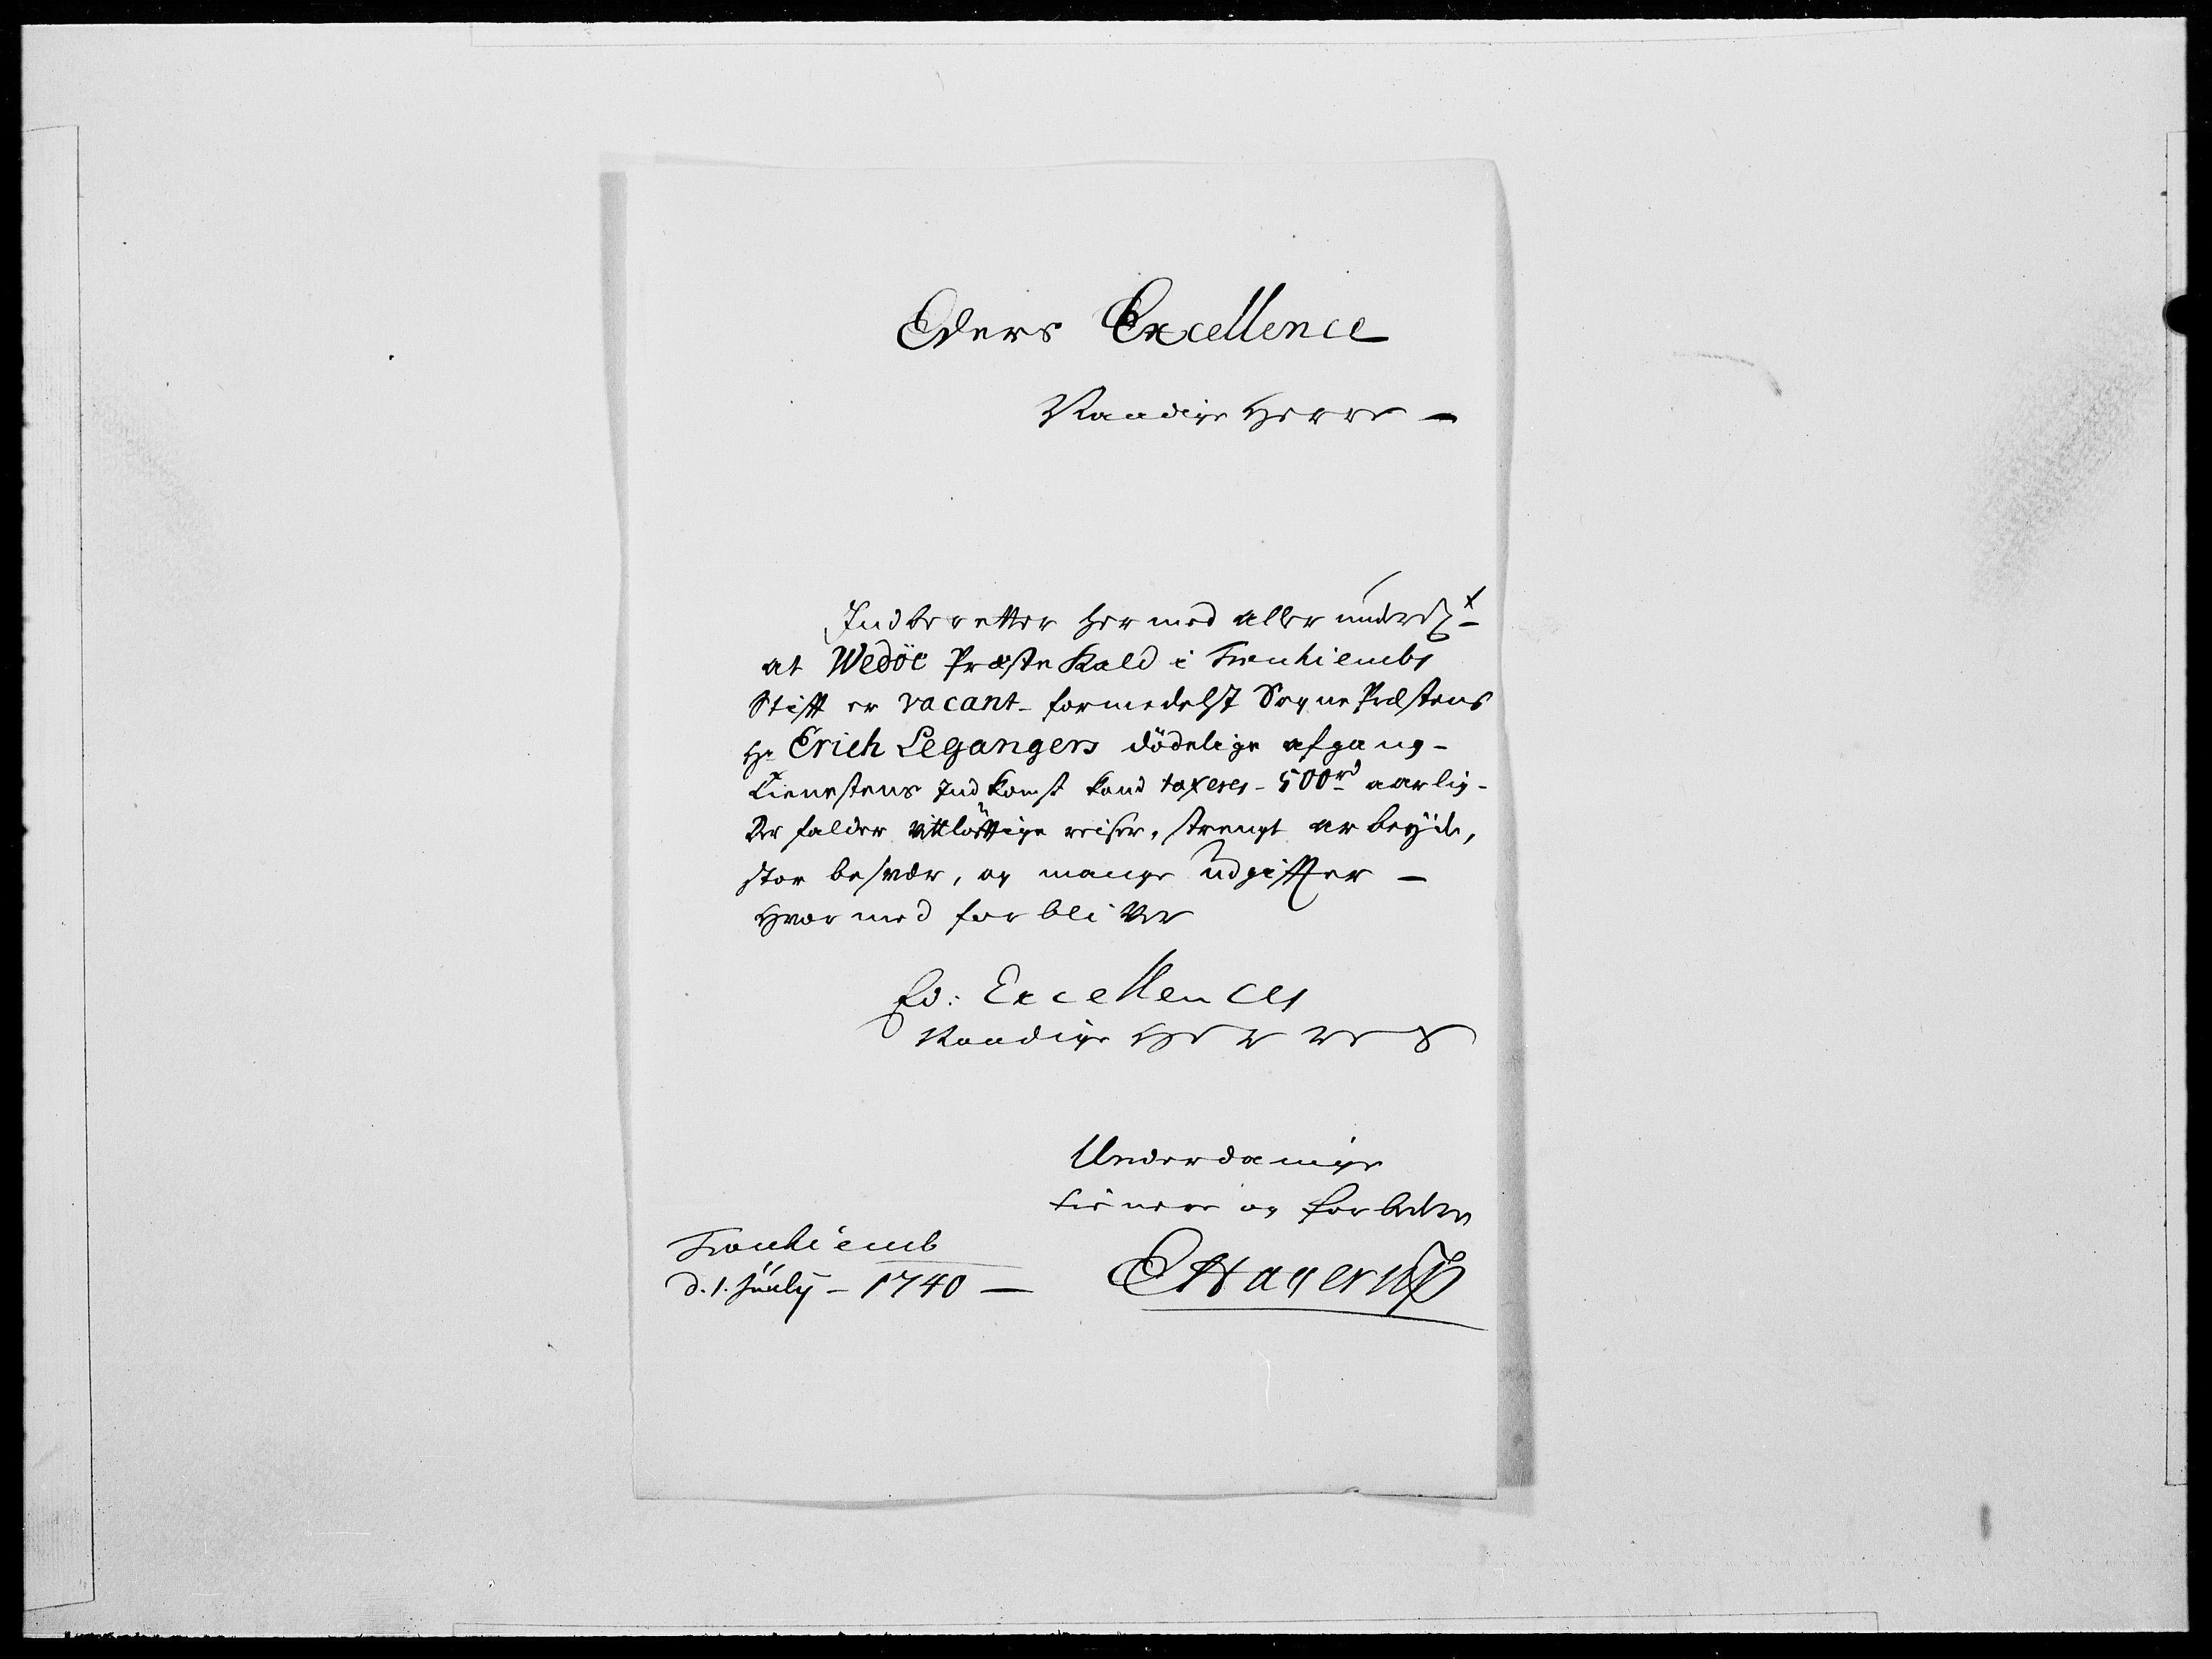 Eders Excellence
Naadige Herre -
Indberetter hermed aller underdt
at Wedöe Præste Kald i Tronhiembs
Stift er vacant - formedelst Sogne Præstens
Hr Erich Legangers dödelige afgang -
Tienestens Indkomst kand taxeres - 500rd aarlig -
Der falder vitlöftige reiser, strengt arbeyde,
stor besvær, og mange udgifter -
Hvormed forbliver
Ed: Excellences
Naadige Herres
Underdanige
tienere og forbeder
Tronhiemb
d. 1. July - 1740 -
EHagerup